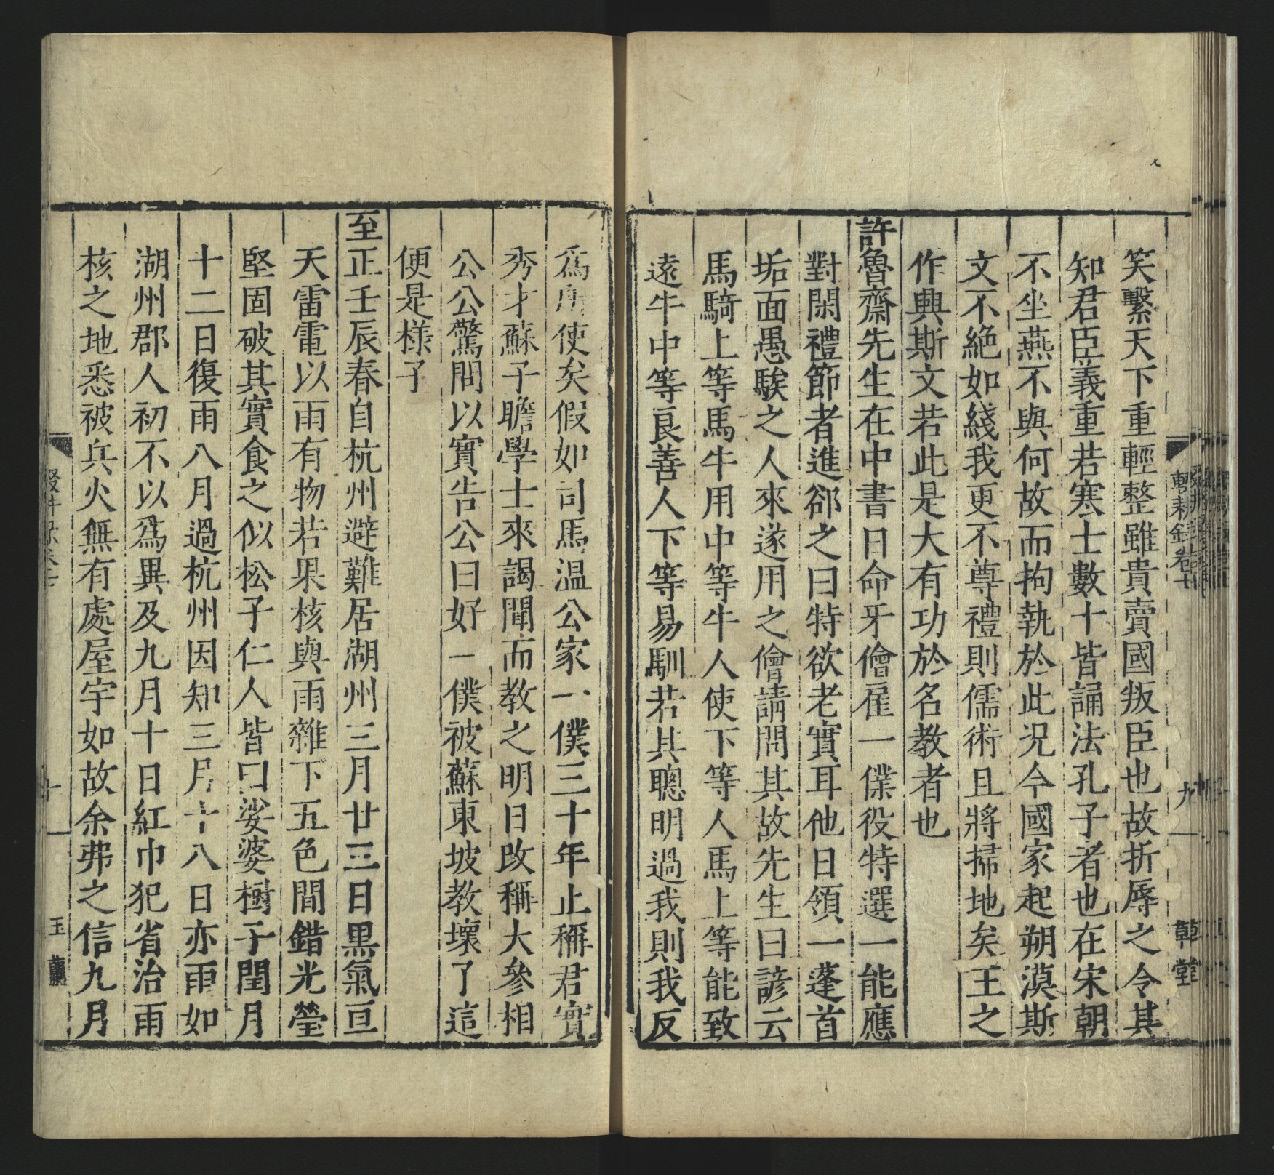 笑繫天下重輕整雖貴賣國叛臣也故折辱之令其
知君臣義重若寒士數十皆誦法孔子者也在宋朝
不坐燕不與何故而拘執於此况今國家起朔漠斯
文不絶如綫我更不尊禮則儒術且將掃地矣王之
作興斯文若此是大有功於名教者也
許魯齋先生在中書日命牙儈雇一僕役特選一能應
對閑禮節者進郤之曰特欲老實耳他日領一蓬首
垢面愚騃之人來遂用之儈請問其故先生曰諺云
馬騎上等馬牛用中等牛人使下等人馬上等能致
遠牛中等良善人下等易馴若其聰明過我則我反
爲所使矣假如司馬温公家一僕三十年止稱君實
秀才蘇子瞻學士來謁聞而教之明日改稱大參相
公公驚問以實告公曰好一僕被蘇東坡教壞了這
便是樣子
至正壬辰春自杭州避難居湖州三月廿三日黑氣亘
天雷電以雨有物若果核與雨雜下五色間錯光瑩
堅固破其實食之似松子仁人皆曰娑婆樹子閏月
十二日復雨八月過杭州因知三月十八日亦雨如
湖州郡人初不以爲異及九月十日紅巾犯省治雨
核之地悉被兵火無有處屋宇如故余弗之信九月
輟耕錄卷七
十
玉蘭
輟耕錄卷七
九
草堂